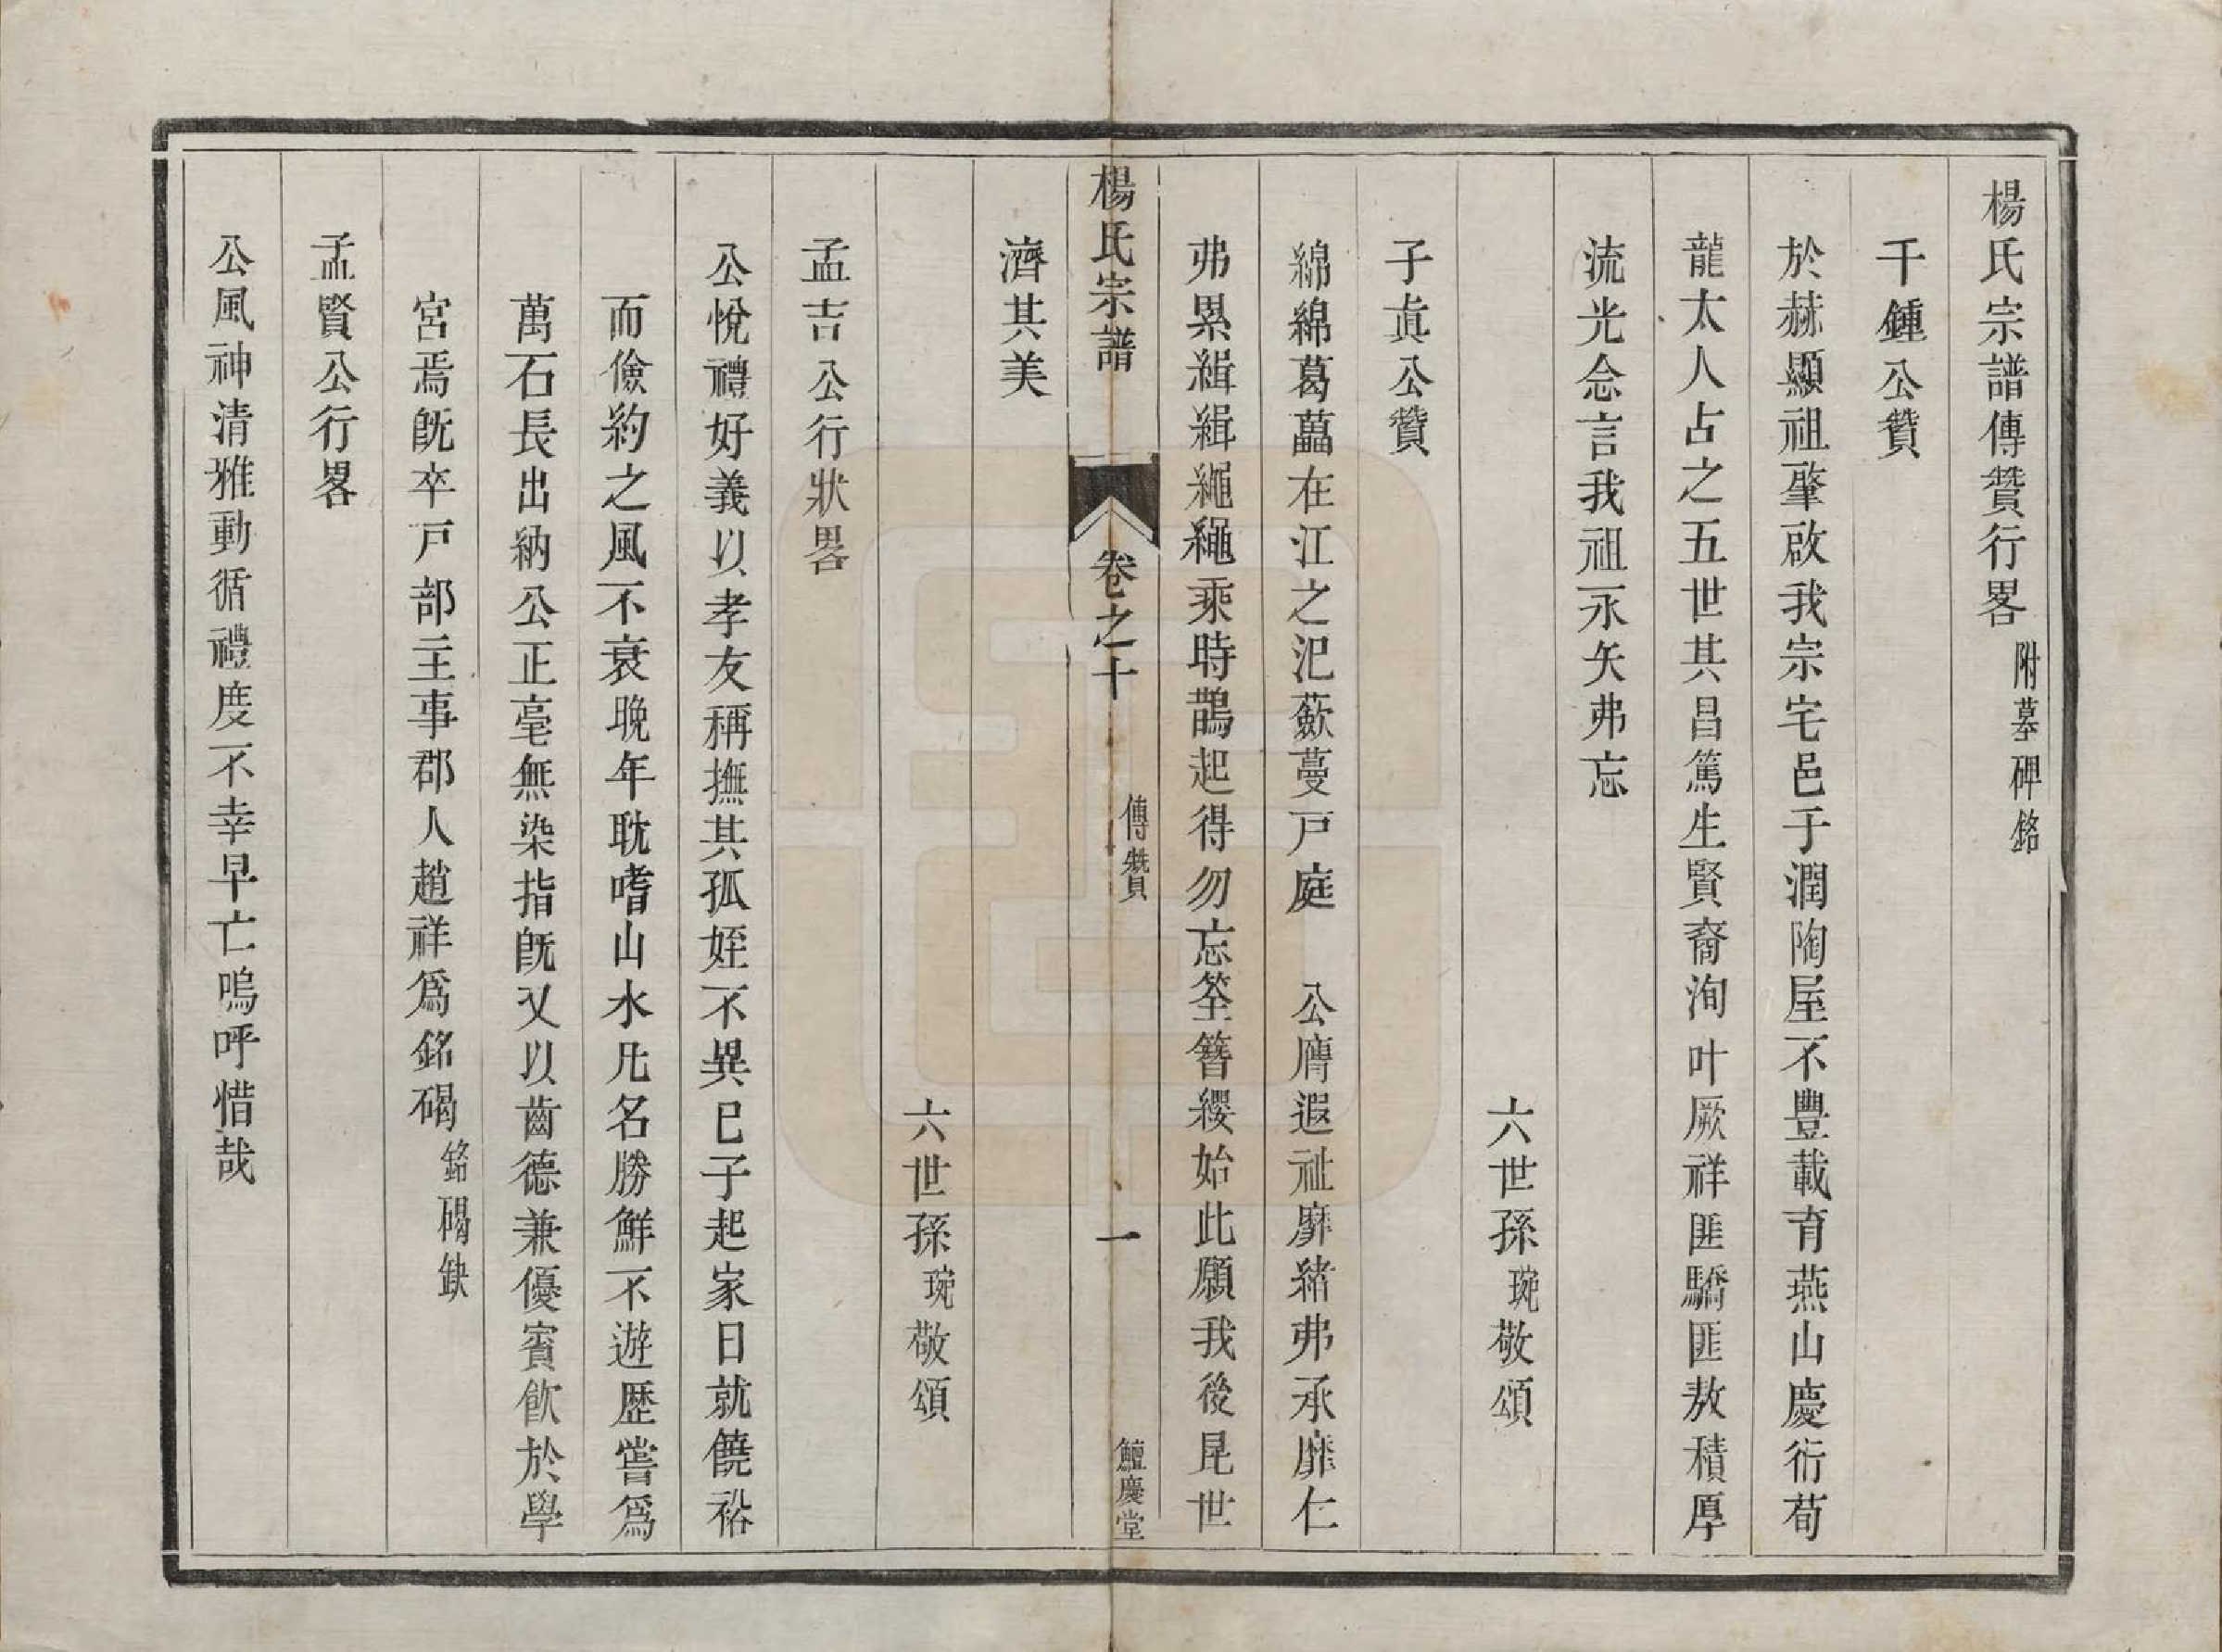 楊氏宗譜傳贊行畧附墓碑銘
千鍾公贊
於赫顯祖肇啟我宗宅邑于潤陶屋不豐載育燕山慶衍荀
龍太人占之五世其昌篤生賢裔洵叶厥祥匪驕匪敖積厚
流光念言我祖永矢弗忘
六世孫琬敬頌
子眞公贊
綿綿葛藟在江之汜蘞蔓戸庭　公膺遐祉靡緒弗承靡仁
弗累緝緝繩繩乘時鵲起得勿忘筌簪纓始此願我後昆世
楊氏宗譜　卷之十　傳贊　一　鱣慶堂
濟其美
六世孫琬敬頌
孟吉公行狀畧
公悅禮好義以孝友稱撫其孤姪不異已子起家日就饒裕
而儉約之風不衰晚年耽嗜山水凡名勝鮮不遊歷嘗爲
萬石長出納公正毫無染指旣又以齒德兼優賓飮於學
宮焉旣卒戸部主事郡人趙祥爲銘碣銘碣缺
孟賢公行畧
公風神清雅動循禮度不幸早亡嗚呼惜哉